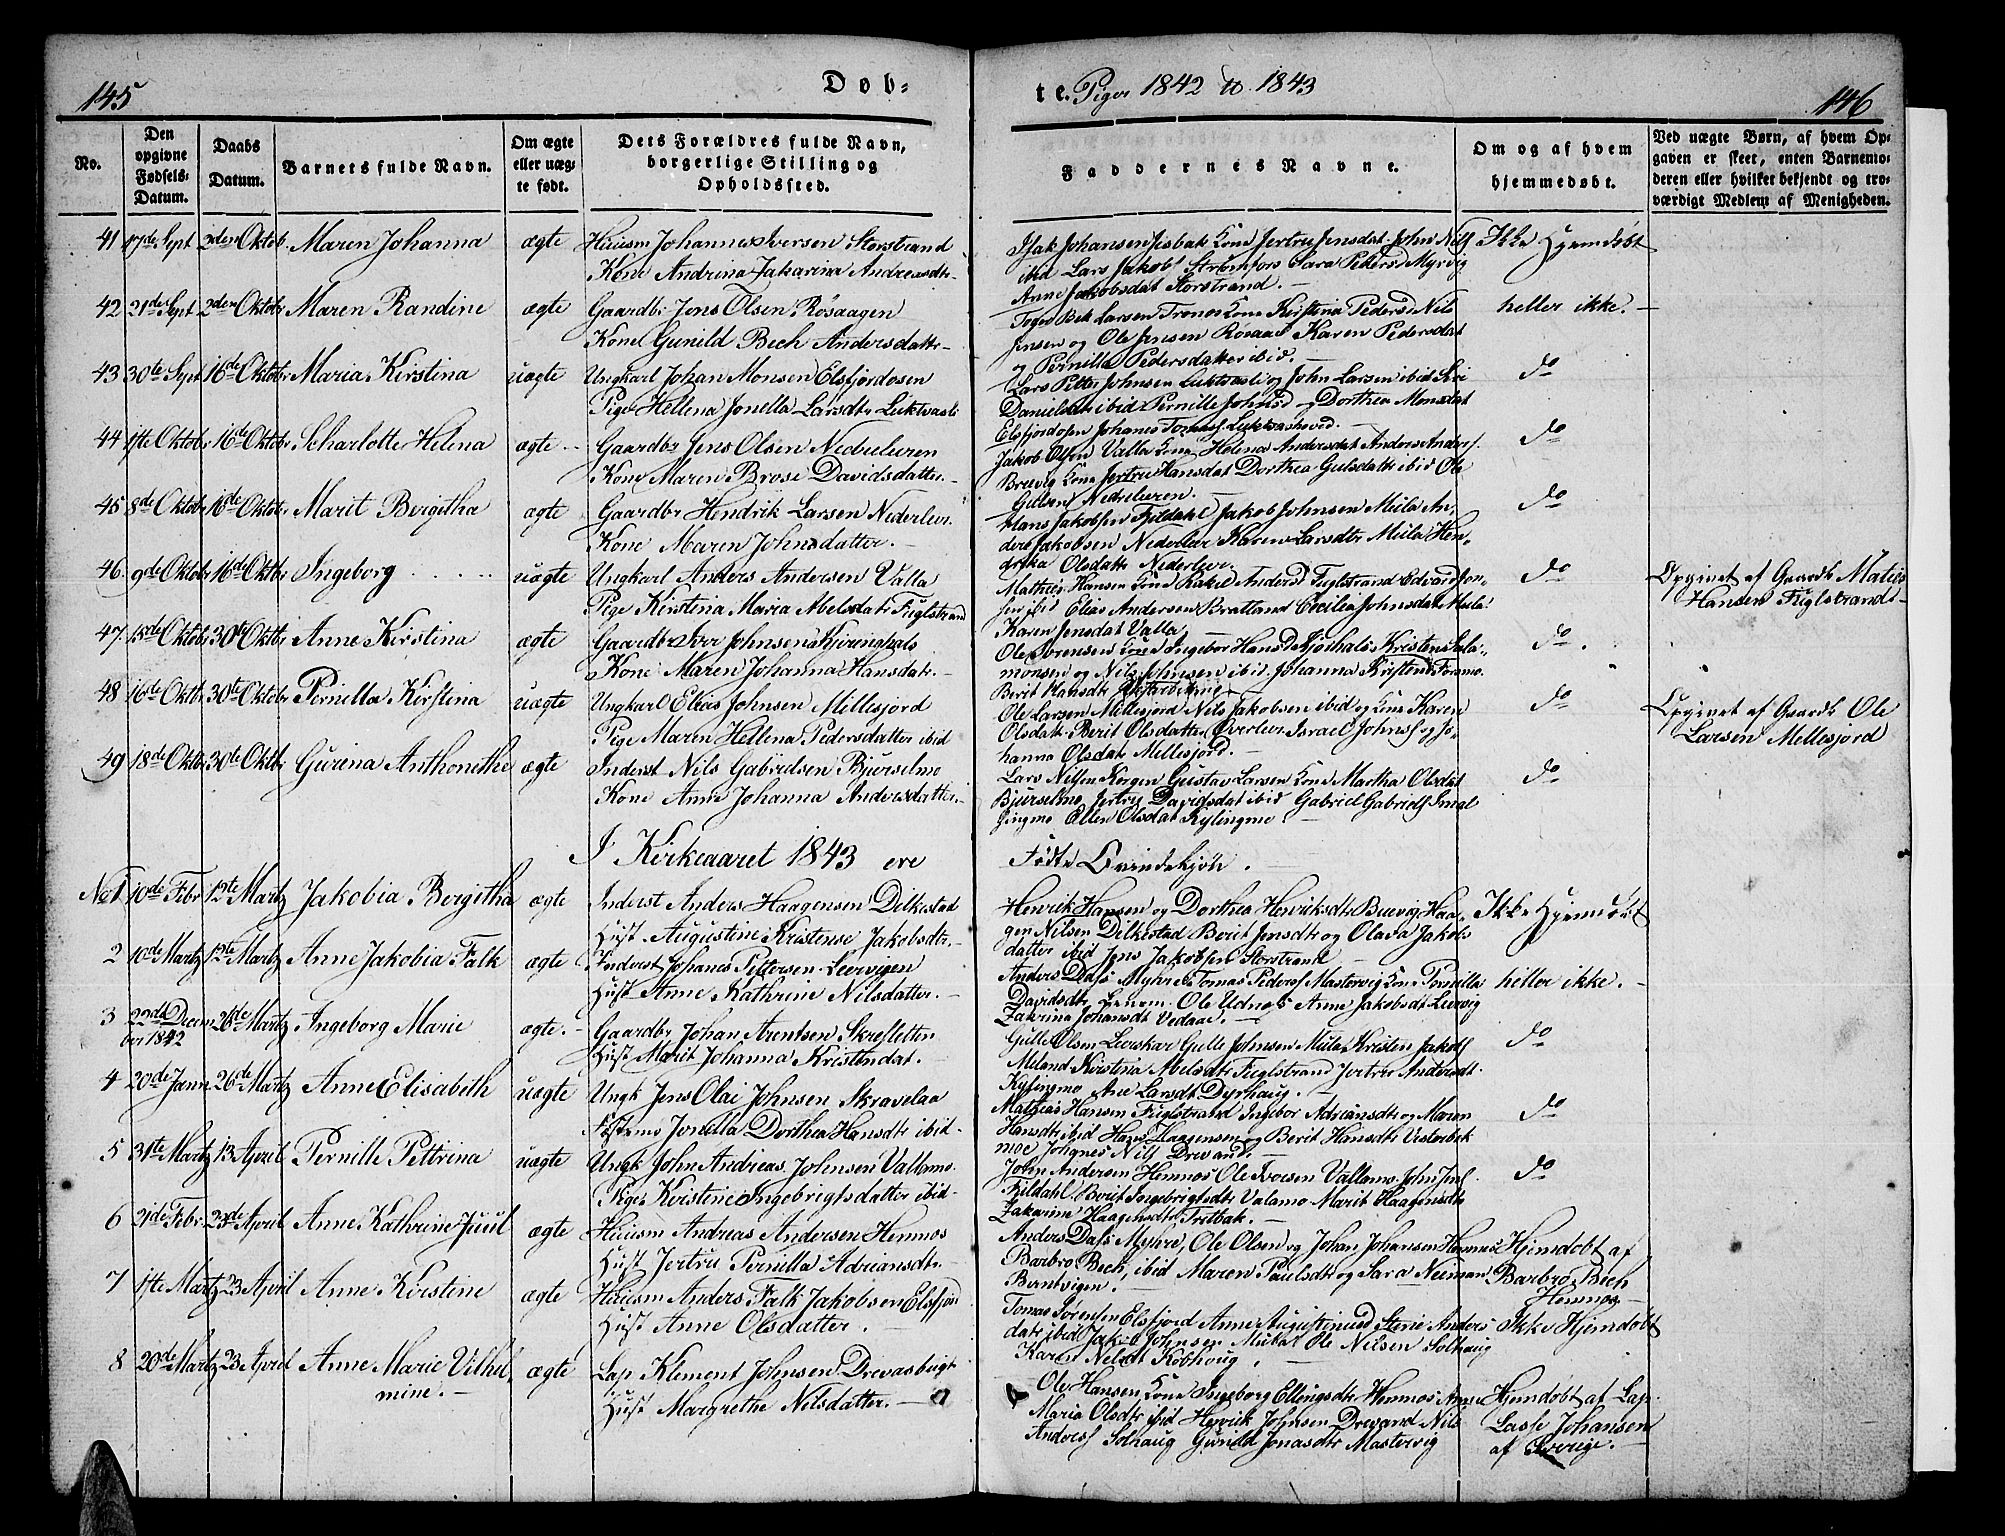 145
Døb-
te. Piger 1842 to 1843
146
No.
Den opgivne Fødsels-Datum.
Daabs Datum.
Barnets fulde Navn.
Om ægte eller uæg-te født.
Dets Forældres fulde Navn, borgerlige Stilling og Opholdssted.
Faddernes Navne.
Om og af hvem hjemmedøbt.
Ved uægte Børn, af hvem Op-gaven er skeet, enten Barnemo-deren eller hvilket bekjendt og tro-værdigt Medlem af Menigheden.
41 17de Sept 2den Oktob Maren Johanna ægte Huusm Johannes Iversen Storstrand
Kone Andrina Zakarina Andreasdtr
Isak Johansen Kone Jertru Jensdat. John Nils
ibid Lars Jakobs Strømfors Sara Peders Myrvig
Anne Jakobsdat Storstrand.
Ikke Hjemdøbt
42 21de Sept 2den Oktobr Maren Randine ægte Gaardbr Jens Olsen Røsaagen
Kone Gunild Bech Andersdattr
Toger Bek Larsen Kone Kirstina Peders Nils
Jensen og Ole Jensen Røsaae Karen Pedersdat
og Pernilla Pedersdatter ibid.
heller ikke.
43 30te Sept 16de Oktobr Maria Kirstina uægte Ungkarl Johan Monsen Elsfjordosen
Pige Hellena Jonella Larsdtr Luktvasli
Lars Petter Johnsen Luktvasli og John Larsen ibid
Danielsdtr ibid Pernille Johnsd og Dorthea Monsdat
Elsfjordosen Johanes Tomass Luktvashoved.
do
44 1ste Oktobr 16de Oktobr Scharlotte Helena ægte Gaardbr Jens Olsen Nedreleiren
Kone Maren Brose Davidsdatter.
Jakob Olsen Valla Kone Helena Andersdat Anders Anders.
Brevig Kone Jertru Hansdat Dorthea Gulsdattr ibid Ole
Gullsen Nedreleiren.
do
45 8de Oktobr 16de Oktobr Marit Bergitha ægte Gaardbr Hendrik Larsen Nederleir.
Kone Maren Johnsdatter.
Hans Jakobsen Fjeldahl Jakob Johnsen Meila An-
ders Jakobsen Nederleir Karen Larsdtr Meila Hen-
drika Olsdattr Nederleir.
do
46 9de Oktobr 16de Oktbr Ingeborg uægte Ungkarl Anders Andersen Valla
Pige Kirstina Maria Abelsdatr Fuglstrand
Mathies Hansen Kone Rakel Andersd Fuglstrand Edvard Jon-
sen ibid Elias Andersen Bratland Cecilia Johnsdat Meila
Karen Jensdat Valla
do
Opgivet af Gaardb Maties
Hansen Fuglstrand
47. 15de Oktobr 30te Oktbr Anne Kirstina ægte Gaardbr Iver Johnsen Kjeringhals
Kone Maren Johanna Hansdatr.
Ole Sørensen Kone Ingebor Hansd Sjøhals Kristen Sala-
monsen og Nils Johnsen ibid. Johanna Kristensd Formo.
Berit Hansdtr
do.
48 16de Oktbr 30te Oktobr Pernilla Kirstina uægte Ungkarl Elias Johnsen Millesjord
Pige Maren Hellena Pedersdatter ibid
Ole Larsen Millesjord Nils Jakobsen ibid og Kone Karen
Olsdatr Berit Olsdatter Øverleir Israel Johns og Jo-
hanna Olsdat Millesjord.
do
Opgivet af Gaardb Ole
Larsen Mellesjord
49 18de Oktbr 30te Oktbr Gurina Anthonethe ægte Inderst Nils Gabrielsen Bjurselmo
Kone Anne Johanna Andersdatter.
Lars Nilsen Korgen Gustav Larsen Kone Martha Olsdat
Bjurselmo Jertru Davidsdat ibid Gabriel Gabriels Smal
gingmo Ellen Olsdat Kylingmo
do
I Kirkeaaret 1843 ere
Fødte Qvindekjøn.
No 1 10de Febr 12te Martz Jakobia Bergitha ægte Inderst Anders Haagensen Dilkestad
Hust Augustine Kristense Jakobsdtr.
Henrik Hansen og Dorthea Henriksdtr Brevig Haa-
gen Nilsen Dilkestad Berit Jensdtr og Olava Jakobs
datter ibid Jens Jakobsen Storstrand
Ikke Hjemdøbt
2 10de Martz 12te Martz Anne Jakobia Falk ægte Inderst Johanes Pettersen Leervigen
Hust Anne Kathrine Nilsdatter.
Anders Dass Myhre Tomas Peders Mastervig Kone Pernilla
Davidsdtr Ole Udnes Anne Jakobsdt Leervig
Zakrina Johansdt Vedaae.
heller ikke.
3 22de Decem
ber 1842 26de Martz Ingeborg Marie ægte. Gaardbr Johan Arentsen Skresletten
Hust Marit Johanna Kristendat.
Gulle Olsen Leerskar Gulle Johnsen Meila Kristen Jakobs
Meiland Kirstina Abelsdt Fuglstrand Jertru Andersdt.
Kylingmo Ane Larsdt Dyrhaug.
do
4 20de Janr 26de Martz Anne Elisabeth uægte Ungk Jens Olai Johnsen Skravelaa
Jonella Dorthea Hansdtr ibid.
Mathias Hansen Fuglstrand Ingebor Adriansdtr og Maren
Hansdtr ibid Hans Haagensen og Berit Hansdtr Vesterbek
moe Johanes Nils Drevand.
do
5 31te Martz 13 April Pernille Pettrina uægte Ungk John Andreas Johnsen Vallamo.
Pige Kirstine Ingebrigtsdatter ibid.
John Andersen Hemnes Ole Iversen Vallamo John Jens
Fjeldahl Berit Ingebrigtsdtr Valamo Marit Haagensdtr
Zakarine Haagensdtr Tretbak.
do
6 21de Febr 23de April Anne Kathrine Juul ægte Huusm Andreas Andersen Hemnes
Hust Jertru Pernilla Adriansdtr.
Anders Dass Myhre, Ole Olsen og Johan Johansen Hemnes
Barbro Bech, ibid Maren Paulsdtr og Sara Neiman
Berntvigen.
Hjemdøbt af
Barbro Bech
Hemnes
7 1ste Martz 23 April Anne Kirstine ægte Huusm Anders Falk Jakobsen Elsfjord
Hust Anne Olsdatter.
Tomas Sørensen Elsfjord Anne Augustinusd Anders
datr ibid Jakob Johnsen Ole Nilsen Solhaug
Karen Nelsdt Kobhoug.
Ikke Hjemdøbt
8 20de Martz 23 April Anne Marie Vilhel
mine. ægte Lap Klement Johnsen Drevasbugt
Hust Margrethe Nilsdatter.
Ole Hansen Kone Ingeborg Ellingsdtr Hemnes Anne
Maria Olsdtr ibid Henrick Johnsen Drevand Nils
Anders Solhaug Gunild Jonasdtr Mastervig
Hjemdøbt af Lap
Lasse Johansen
af Sverige.